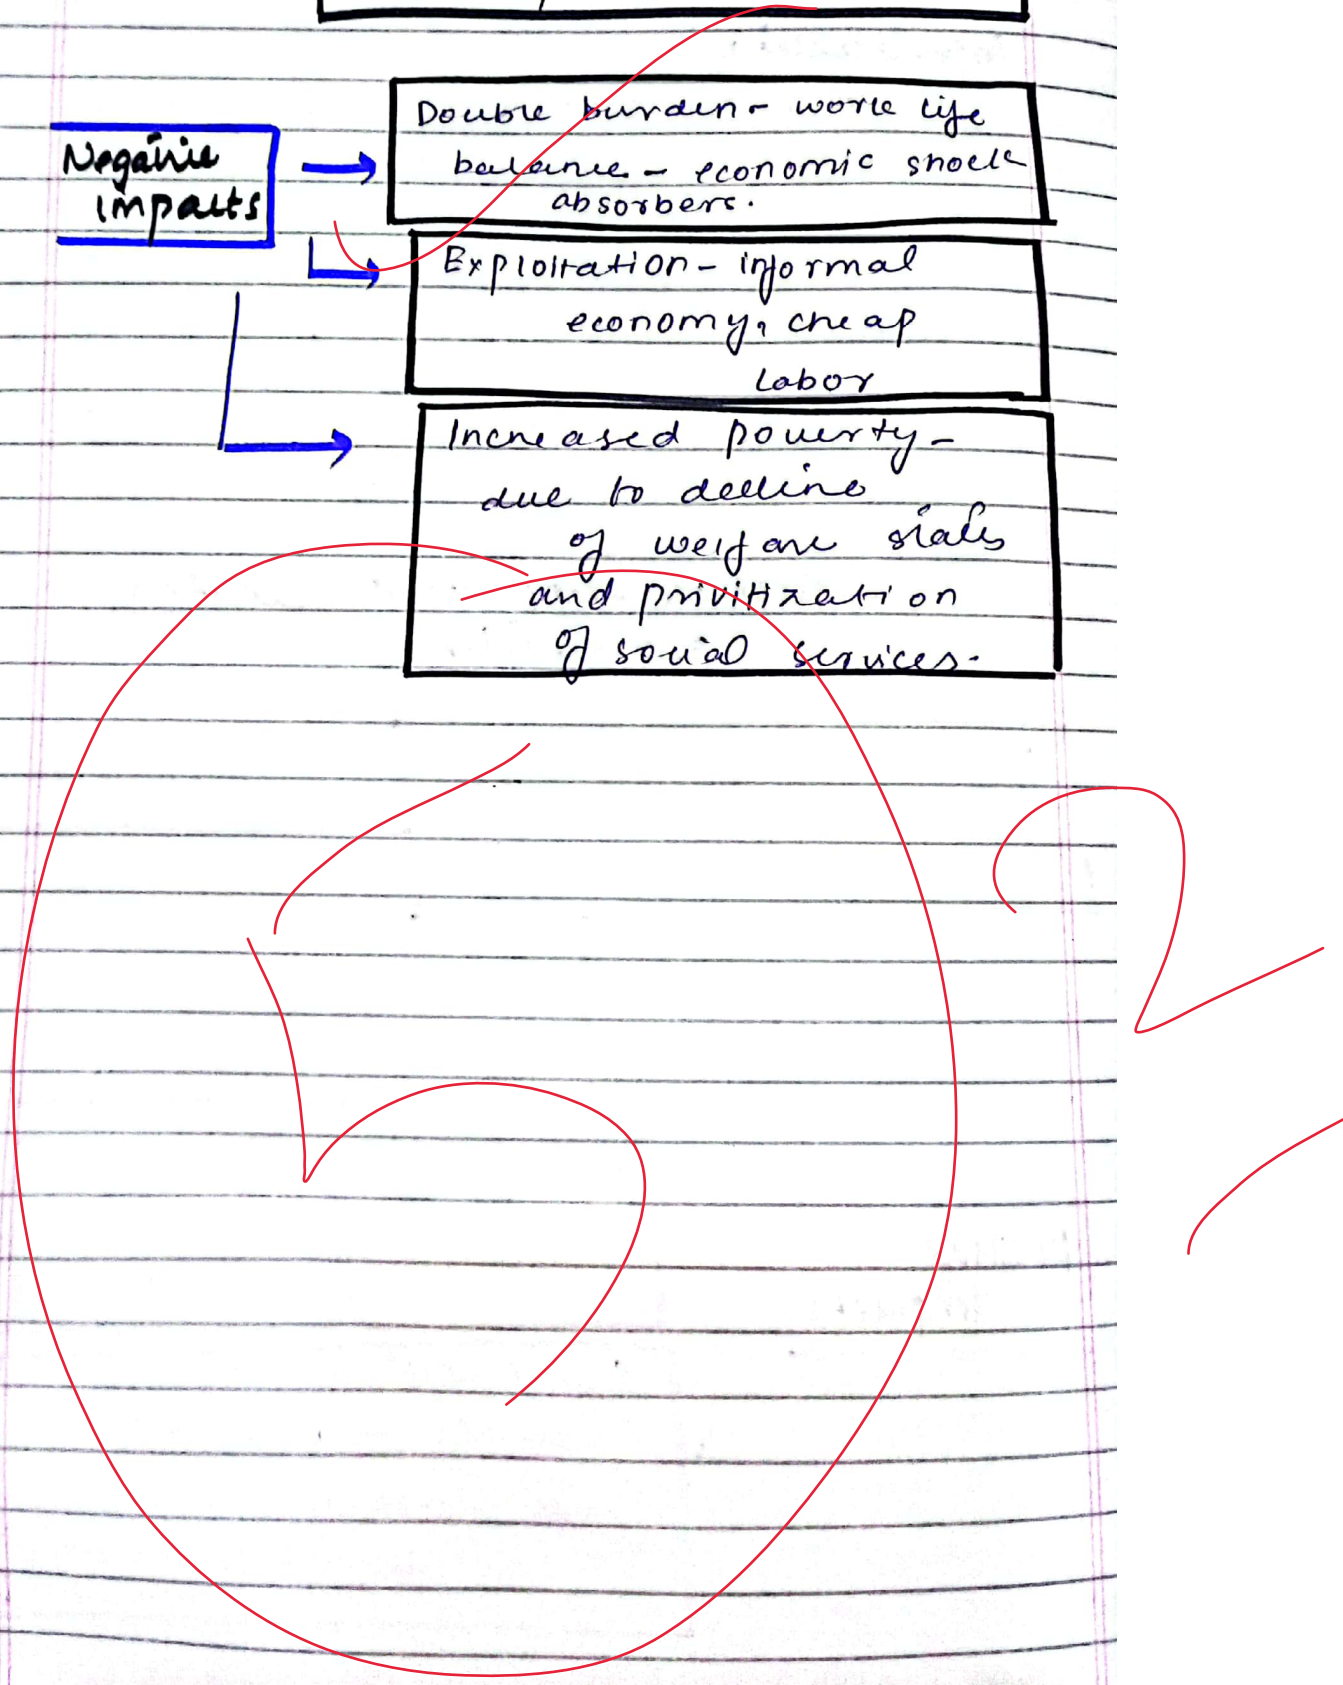 Negative
impacts
Double burden - work life
balance - economic shock
absorbers.
Exploitation - informal
economy, cheap
labor
Increased poverty -
due to decline
of welfare states
and privitization
of social services.
5
2